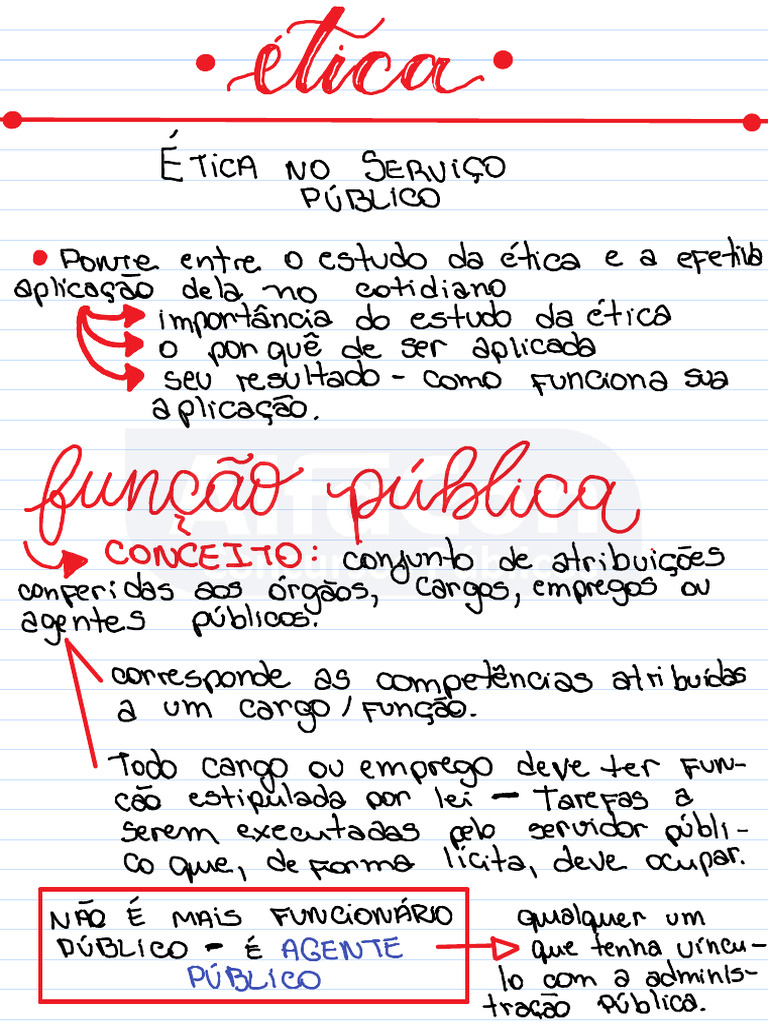 ética
ÉTICA NO SERVIÇO
PÚBLICO
Ponte entre o estudo da ética e a efetiva
aplicação dela no cotidiano
importância do estudo da ética
o por quê de ser aplicada
seu resultado - como funciona sua
aplicação.
função pública
CONCEITO: conjunto de atribuições
conferidas aos órgãos, cargos, empregos ou
agentes públicos.
corresponde as competências atribuídas
a um cargo/função.
Todo cargo ou emprego deve ter fun-
ção estipulada por lei - Tarefas a
serem executadas pelo servidor públi-
co que, de forma lícita, deve ocupar.
NÃO É MAIS FUNCIONÁRIO
PÚBLICO - É AGENTE
PÚBLICO
qualquer um
que tenha víncu-
lo com a adminis-
tração Pública.